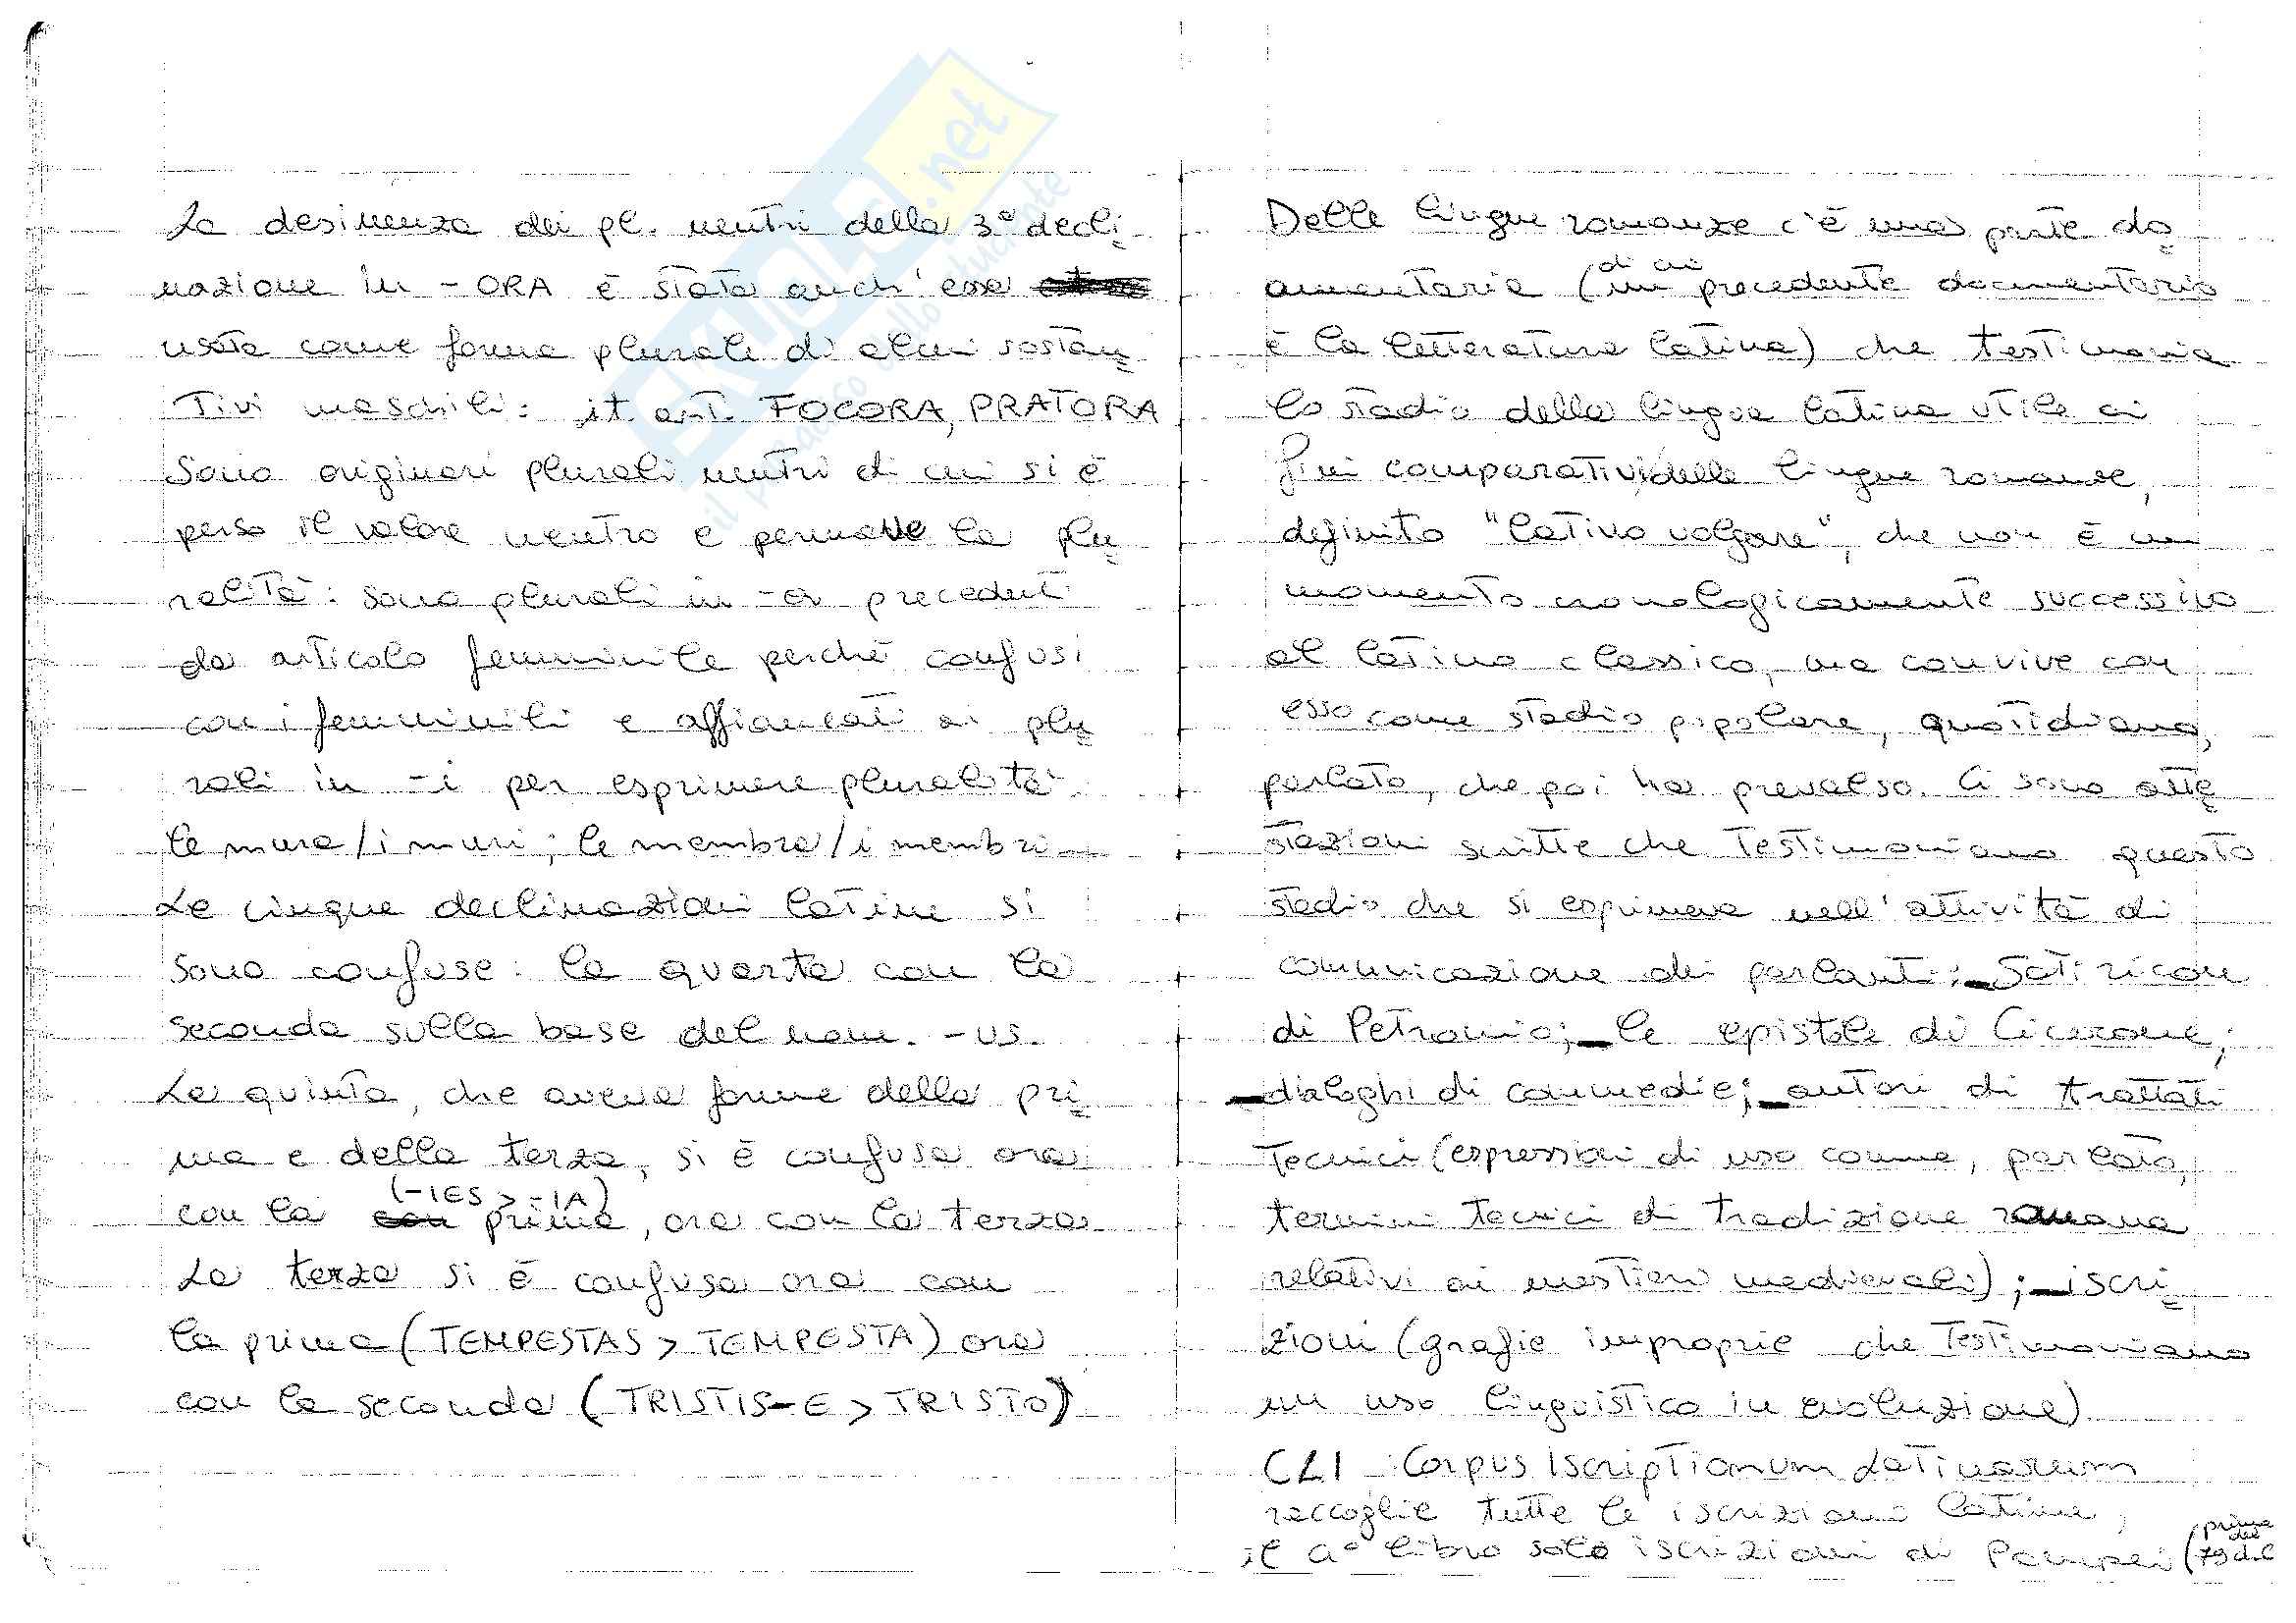 La desinenza dei pl. neutri della 3ª decli
nazione in -ORA è stata anch'essa
usata come forma plurale di alcuni sostan
tivi maschili: it. ant. FOCORA, PRATORA
Sono originari plurali neutri di cui si è
perso il valore neutro e permane la plu
ralità: sono plurali in -a preceduti
da articolo femminile perché confusi
con i femminili e affiancati ai plu
rali in -i per esprimere pluralità.
le mura/i muri; le membra/i membri
Le cinque declinazioni latine si
sono confuse: la quarta con la
seconda sulla base del nom. -us.
La quinta, che aveva forme della pri
ma e della terza, si è confusa ora
(-IES > -IA)
con la prima, ora con la terza
La terza si è confusa ora con
la prima (TEMPESTAS > TEMPESTA) ora
con la seconda (TRISTIS-E > TRISTO)
Delle lingue romanze c'è una parte do
di cui
cumentaria (un precedente documentario
è la letteratura latina) che testimonia
lo stadio della lingua latina utile ai
fini comparativi delle lingue romanze,
definito "latino volgare", che non è un
momento cronologicamente successivo
al latino classico, ma convive con
esso come stadio popolare, quotidiano,
parlato, che poi ha prevalso. Ci sono atte
stazioni scritte che testimoniano questo
stadio che si esprimeva nell'attività di
comunicazione dei parlanti: - Satiricon
di Petronio; - le epistole di Cicerone;
- dialoghi di commedie; - autori di trattati
tecnici (espressioni di uso comune, parlato,
termini tecnici di tradizione romana
relativi ai mestieri medievali); - iscri
zioni (grafie improprie che testimoniano
un uso linguistico in evoluzione)
CLI Corpus Iscriptionum Latinarum
raccoglie tutte le iscrizioni latine,
il 4° libro solo iscrizioni di Pompei (prima del 79 d.C
SKUOLA.net
il paradiso dello studente